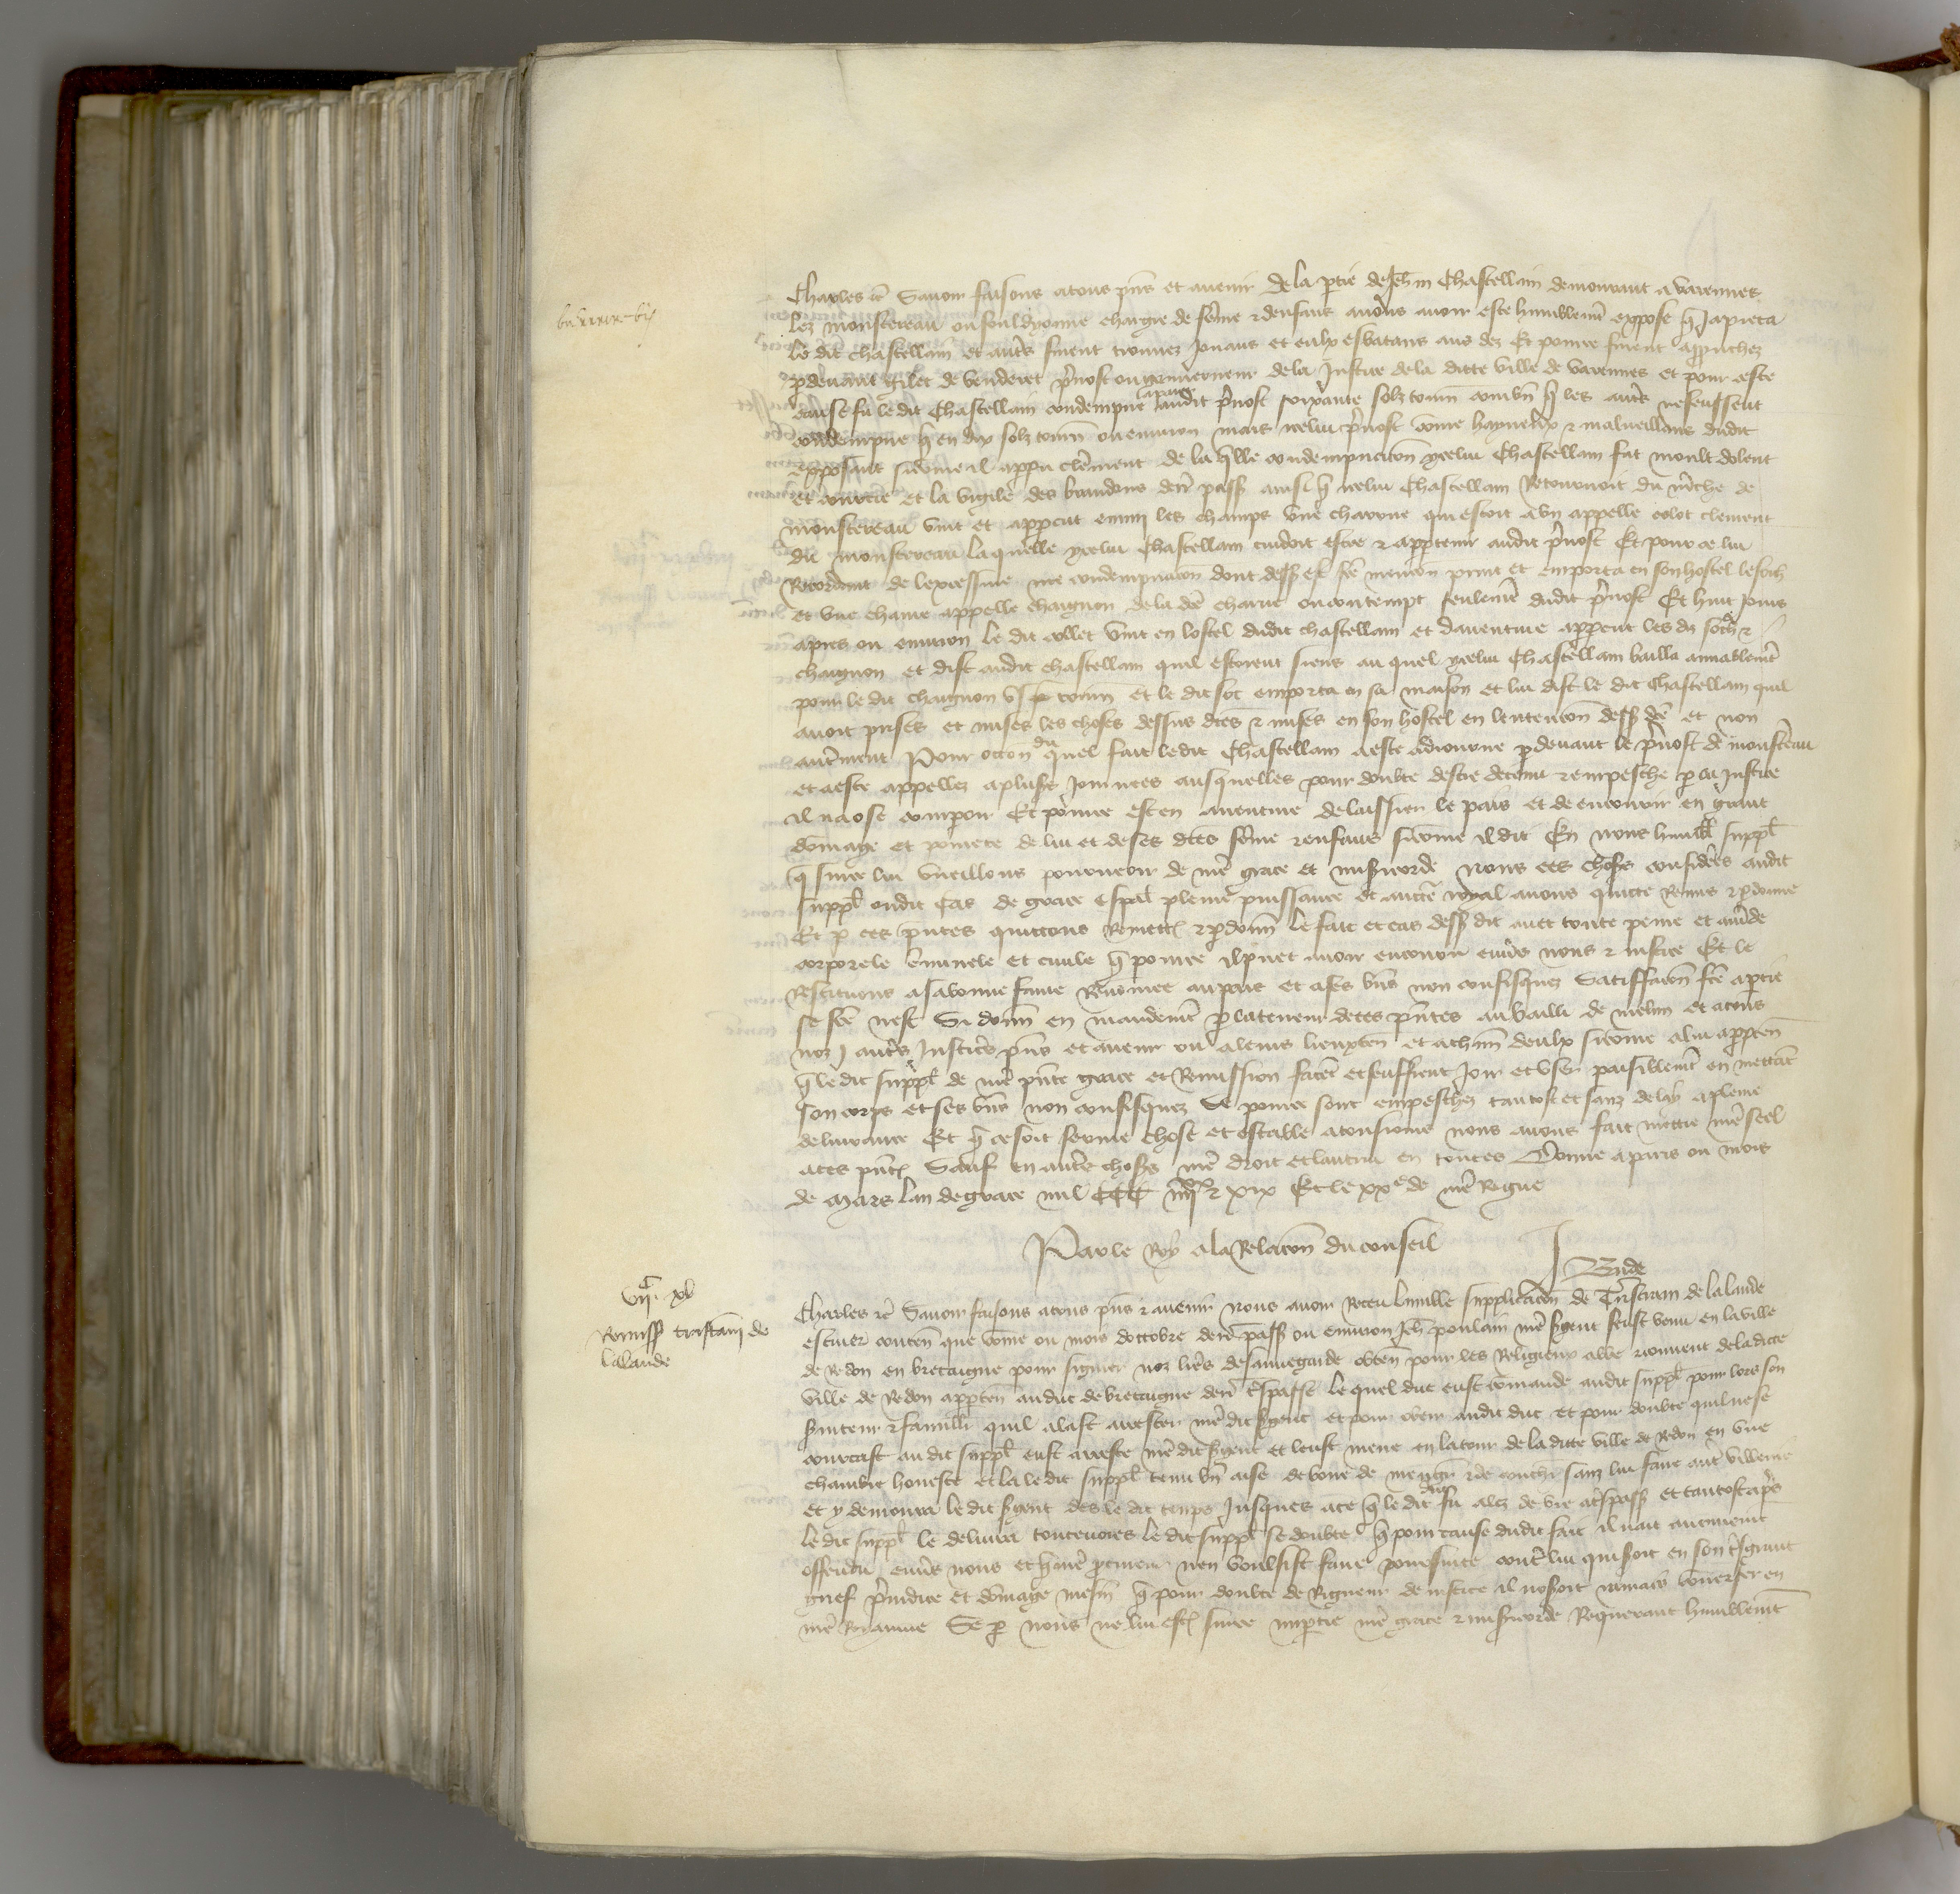 Charles etc Savoir faisons a tous pñs et avenir de la ptie de Jehñ Chastellain demourant a varennes
lez monstereau ou foul dyonne chargie de feme et denfans avons avoir este humblemt expose q Japieca
le dit Chastellain et autrs furent trouvez Jouans et eulx esbatans aus dez Et pour ce furent approuchez
pdevant Gilet de prevost ou gouverneur de la Justice de la ditte ville de varennes et pour ceste
cause fu le dit Chastellain condempne audit prvost soixante solz tourn combn q les autrs ne feussent
condempne q en dix solz tourn ou environ mais icelui prvost come hayneux et malveillans dudit
exposant sicome il appu clerement de la qlle condempnacon ycelui Chastellain fut moult dolent
et courcie et la vigile des brandons derr pass ainsi q icelui Chastellain Retournoit du mrche de
monstereau vint et appceut emmy les champs une charrue qui estoit a un appelle colot clement
du monstereau laquelle ycelui Chastellain cuidoit estre et apptenir audit prvost Et pour ce lui
Recordant de lexcessive condempnacon dont dess est fte mencon print et emporta en son hostel le soich
et une chaine appelle chaignon de la dte charrue ou contempt seulemt dudit prvost Et huit Jours
apres ou environ le dit collet vint en lostel dudit chastellain et daventure appceut les dz soch et
chaignon et dist audit chastellain quil estoient siens au quel ycelui Chastellain bailla amiablemt
pour le dit chaignon tourn et le dit soc emporta en sa maison et lui dist le dit Chastellain quil
avoit prises et mises les choses dessus dtes et mises en son hostel en lentencon dess dte et non
autrement Pour occon du quel fait ledit Chastellain a este adiourne pdevant le prvost de monstreau
et a este appellez a plusrs Journees ausquelles pour doubte destre detenu et empesche p la Justice
il na ose comparoir Et pour ce est en aventure de laissier le pais et de encourir en grant
domage et povrete de lui et de ses dtes feme et enfans sicome il dit En nous humblt suppl
q sur ce lui vueillons pourveoir de nre grace et misricorde Nous ces choses considerees audit
suppl ondit cas de grace espal pleine puissance et aucte royal avons quicte Remis et pdonne
Et p ces pñtes quictons Remett et pdonn le fait et cas dess dit avec toute peine et amde
corporele crimnele et civile q pour ce il puet avoir encouru envrs nous et Justice Et le
Restituons a sa bonne fame Renomee au pais et a ses bns non confisquez Satisfacon fte a ptie
se fte nest Si donn en mandemt p la teneur de ces pñtes au bailli de meleun et a tous
noz autrs Justicrs pñs et avenir ou a leurs lieuxten et a chun deulx sicome a lui appten
q le dit suppl de nre pñte grace et Remission facet et seuffrent Joir et user paisiblemt en mettat
son corps et ses bns non confisquez Se pour ce sont empeschez tantost et sanz delay a pleine
delivrance Et q ce soit ferme chose et estable a tousiours nous avons fait mettre nre seel
a ces pñt Sauf en autrs choses nre droit et lautrui en toutes Donne a paris ou mois
de Mars lan de grace mil CCC iiijxx et xix Et le xxe de nre Regne
Par le Roy a la Relacon du conseil J Bude
vijc xv
Remiss tristani de
lalande
Charles etc Savoir faisons a tous pñs et avenir nous avoir Receu lumble supplicacion de Tristram de la lande
escuier conten que come ou mois doctobre derr pass ou environ Jeh poulain nre srgent feust venu en la ville
de Redon en bretaigne pour signer noz lres de sauvegarde obten pour les Religieux abbe et couvent de la dicte
ville de Redon appten au duc de bretaigne derr trspasse le quel duc eust comande audit suppl pour lors son
srviteur et famillr quil alast arrester nre dit srgent et pour obeir audit duc et pour doubte quil ne se
courcast au dit suppl eust arreste nre dit srgent et leust mene en la tour de la ditte ville de Redon en une
chambre honeste et la le dit suppl tenu bn aise de boire de mengr et de couchr sanz lui faire autr villenie
et y demoura le dit srgent des le dit temps Jusques a ce q le dit duc fu alez de vie a trspass et tantost aprs
le dit suppl le delivra toutevoies le dit suppl se doubte q pour cause dudit fait il nait aucunemt
offendu envrs nous et q nre procureur nen voulsist faire poursuite contr lui qui seroit en son trsgrant
grief prjudice et domage mesm q pour doubte de Rigueur de justice il noseroit jamais converser en
nre Royaume Se p nous ne lui est sur ce imptie nre grace et misricorde Requerant humblemt